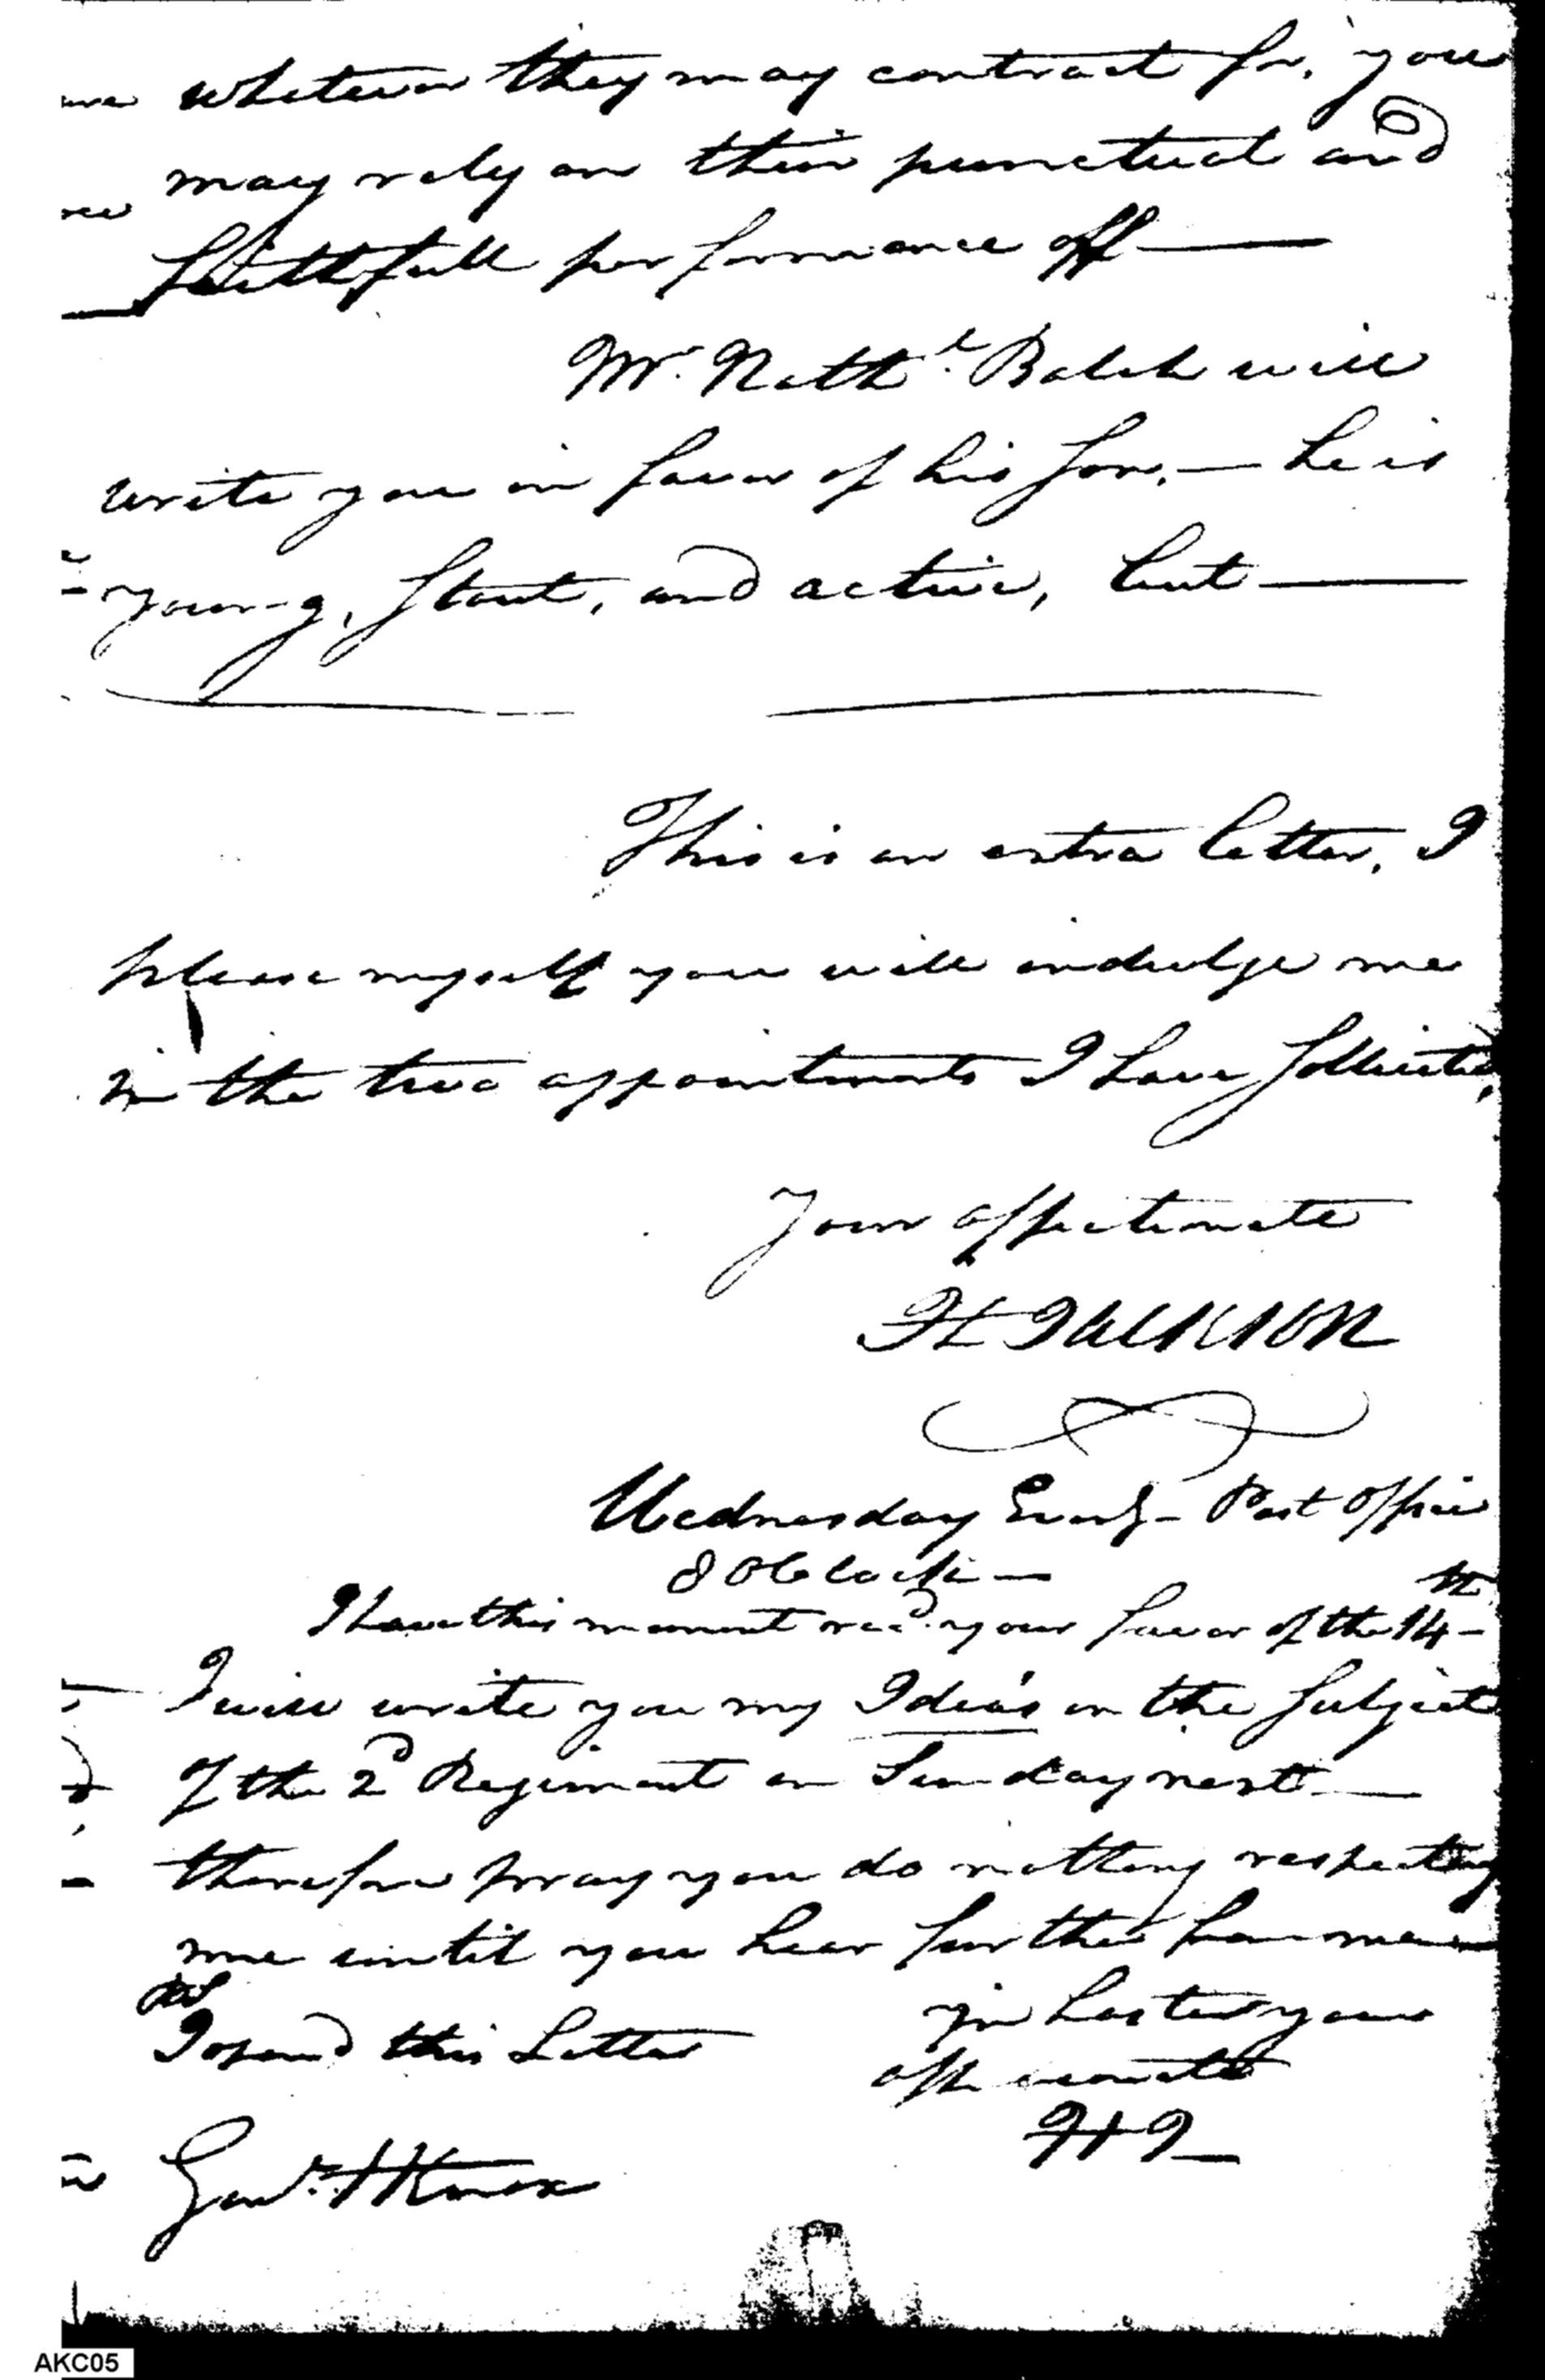 whatever they may contract for, you
may rely on their punctual and
faithfull performance off —
Mr. Nathl. Balch will
write you in favor of his son, — he is
young, stout, and active, but —
This is an extra letter, I
please myself you will indulge me
in the two appointments I have sollicited,
Your affectionate
H JACKSON
Wednesday Eveng - Post office
8 OClock —
I have this moment recd. your favor of the 14th -
I will write you my Idea's on the subject
of the 2d Regiment on Sunday next —
therefore pray you do nothing respecting
me until you hear further from me
in haste your
I opened this Letter
affectionate
HJ —
Genl. H Knox
AKC05